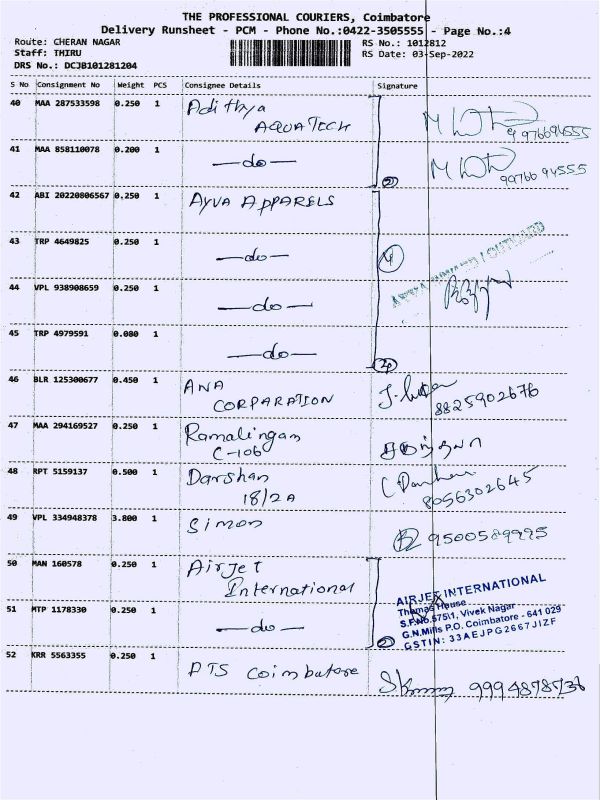 THE PROFESSIONAL COURIERS, Coimbatore
Delivery Runsheet - PCM - Phone No.:0422-3505555 - Page No.:4
Route: CHERAN NAGAR
RS No.: 1012812
Staff: THIRU
RS Date: 03-Sep-2022
DRS No.: DCJB101281204
S No Consignment No Weight PCS Consignee Details Signature
40 MAA 287533598 0.250 1 Adithya
AQUATECH
9976694555
41 MAA 858110078 0.200 1 —do—
9976694555
②
42 ABI 20220806567 0.250 1 AYVA APPARELS
43 TRP 4649825 0.250 1 —do—
④
44 VPL 938908659 0.250 1 —do—
45 TRP 4979591 0.080 1 —do—
④
46 BLR 125300677 0.450 1 ANA
CORPARATION
8825902676
47 MAA 294169527 0.250 1 Ramalingam
C-106
48 RPT 5159137 0.500 1 Darshan
18/2A
8056302645
49 VPL 334948378 3.800 1 Simon
9500589995
50 MAN 160578 0.250 1 Airjet
International
AIRJET INTERNATIONAL
Thomas House
S.F.No.575\1, Vivek Nagar
G.N.Mills P.O. Coimbatore - 641 029
GSTIN: 33AEJPG2667J1ZF
51 MTP 1178330 0.250 1 —do—
②
52 KRR 5563355 0.250 1 PTS Coimbatore
9994878736